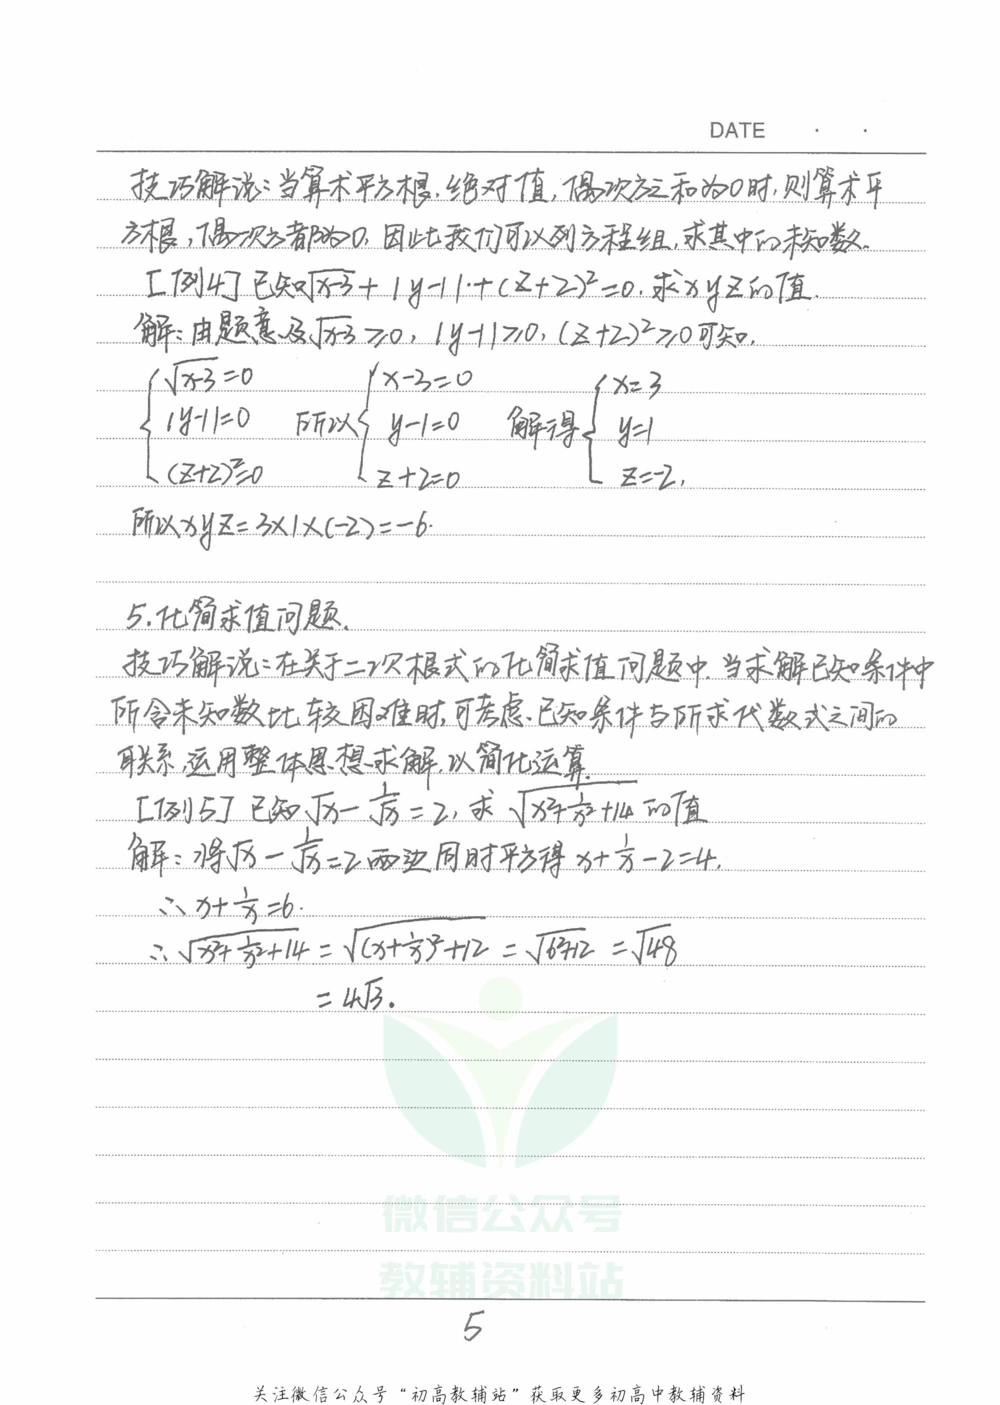 DATE · ·
技巧解说:当算术平方根,绝对值,偶次方之和为0时,则算术平
方根,偶次方都为0,因此我们可以列方程组,求其中的未知数.
[例4]已知√(x-3)+|y-1|+(z+2)²=0,求xyz的值.
解:由题意及√(x-3)≥0,|y-1|≥0,(z+2)²≥0可知,
{√(x-3)=0 所以{x-3=0 解得{x=3
|y-1|=0 y-1=0 y=1
(z+2)²=0 z+2=0 z=-2,
所以xyz=3×1×(-2)=-6.
5.化简求值问题.
技巧解说:在关于二次根式的化简求值问题中,当求解已知条件中
所含未知数比较困难时,可考虑已知条件与所求代数式之间的
联系,运用整体思想求解,以简化运算.
[例5]已知√x-1/√x=2,求√(x²+1/x²+14)的值
解:将√x-1/√x=2两边同时平方得x+1/x-2=4,
∴x+1/x=6.
∴√(x²+1/x²+14)=√((x+1/x)²+12)=√(6²+12)=√48
=4√3.
微信公众号
教辅资料站
5
关注微信公众号“初高教辅站”获取更多初高中教辅资料